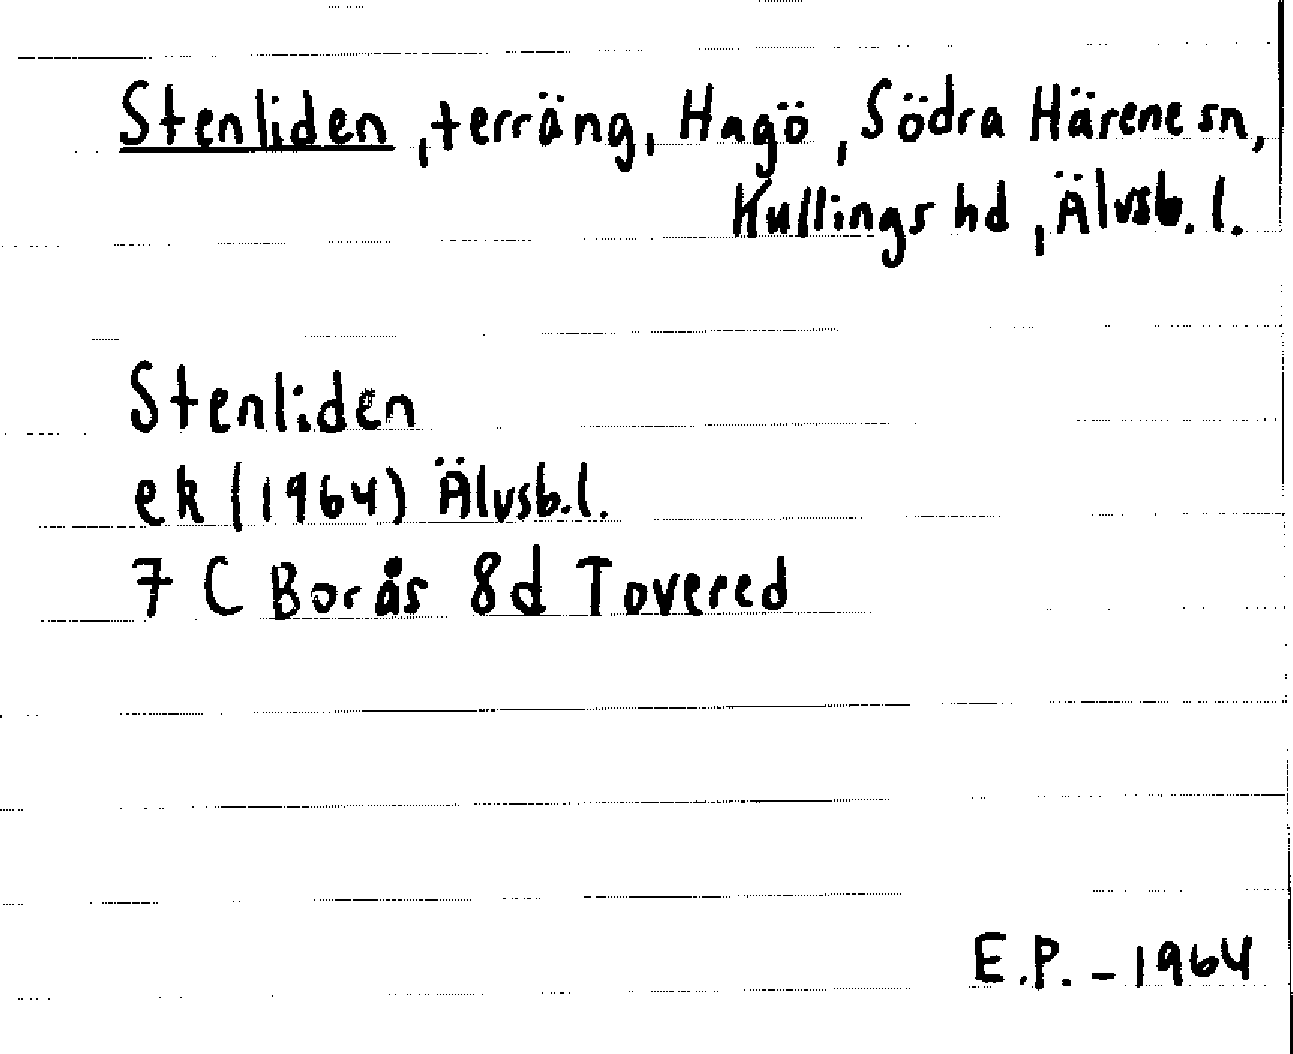 Stenliden, terräng, Hagö, Södra Härene sn,
Kullings hd, Älvsb. l.
Stenliden
ek (1964) Älvsb.l.
7 C Borås 8d Tovered
E.P. - 1964